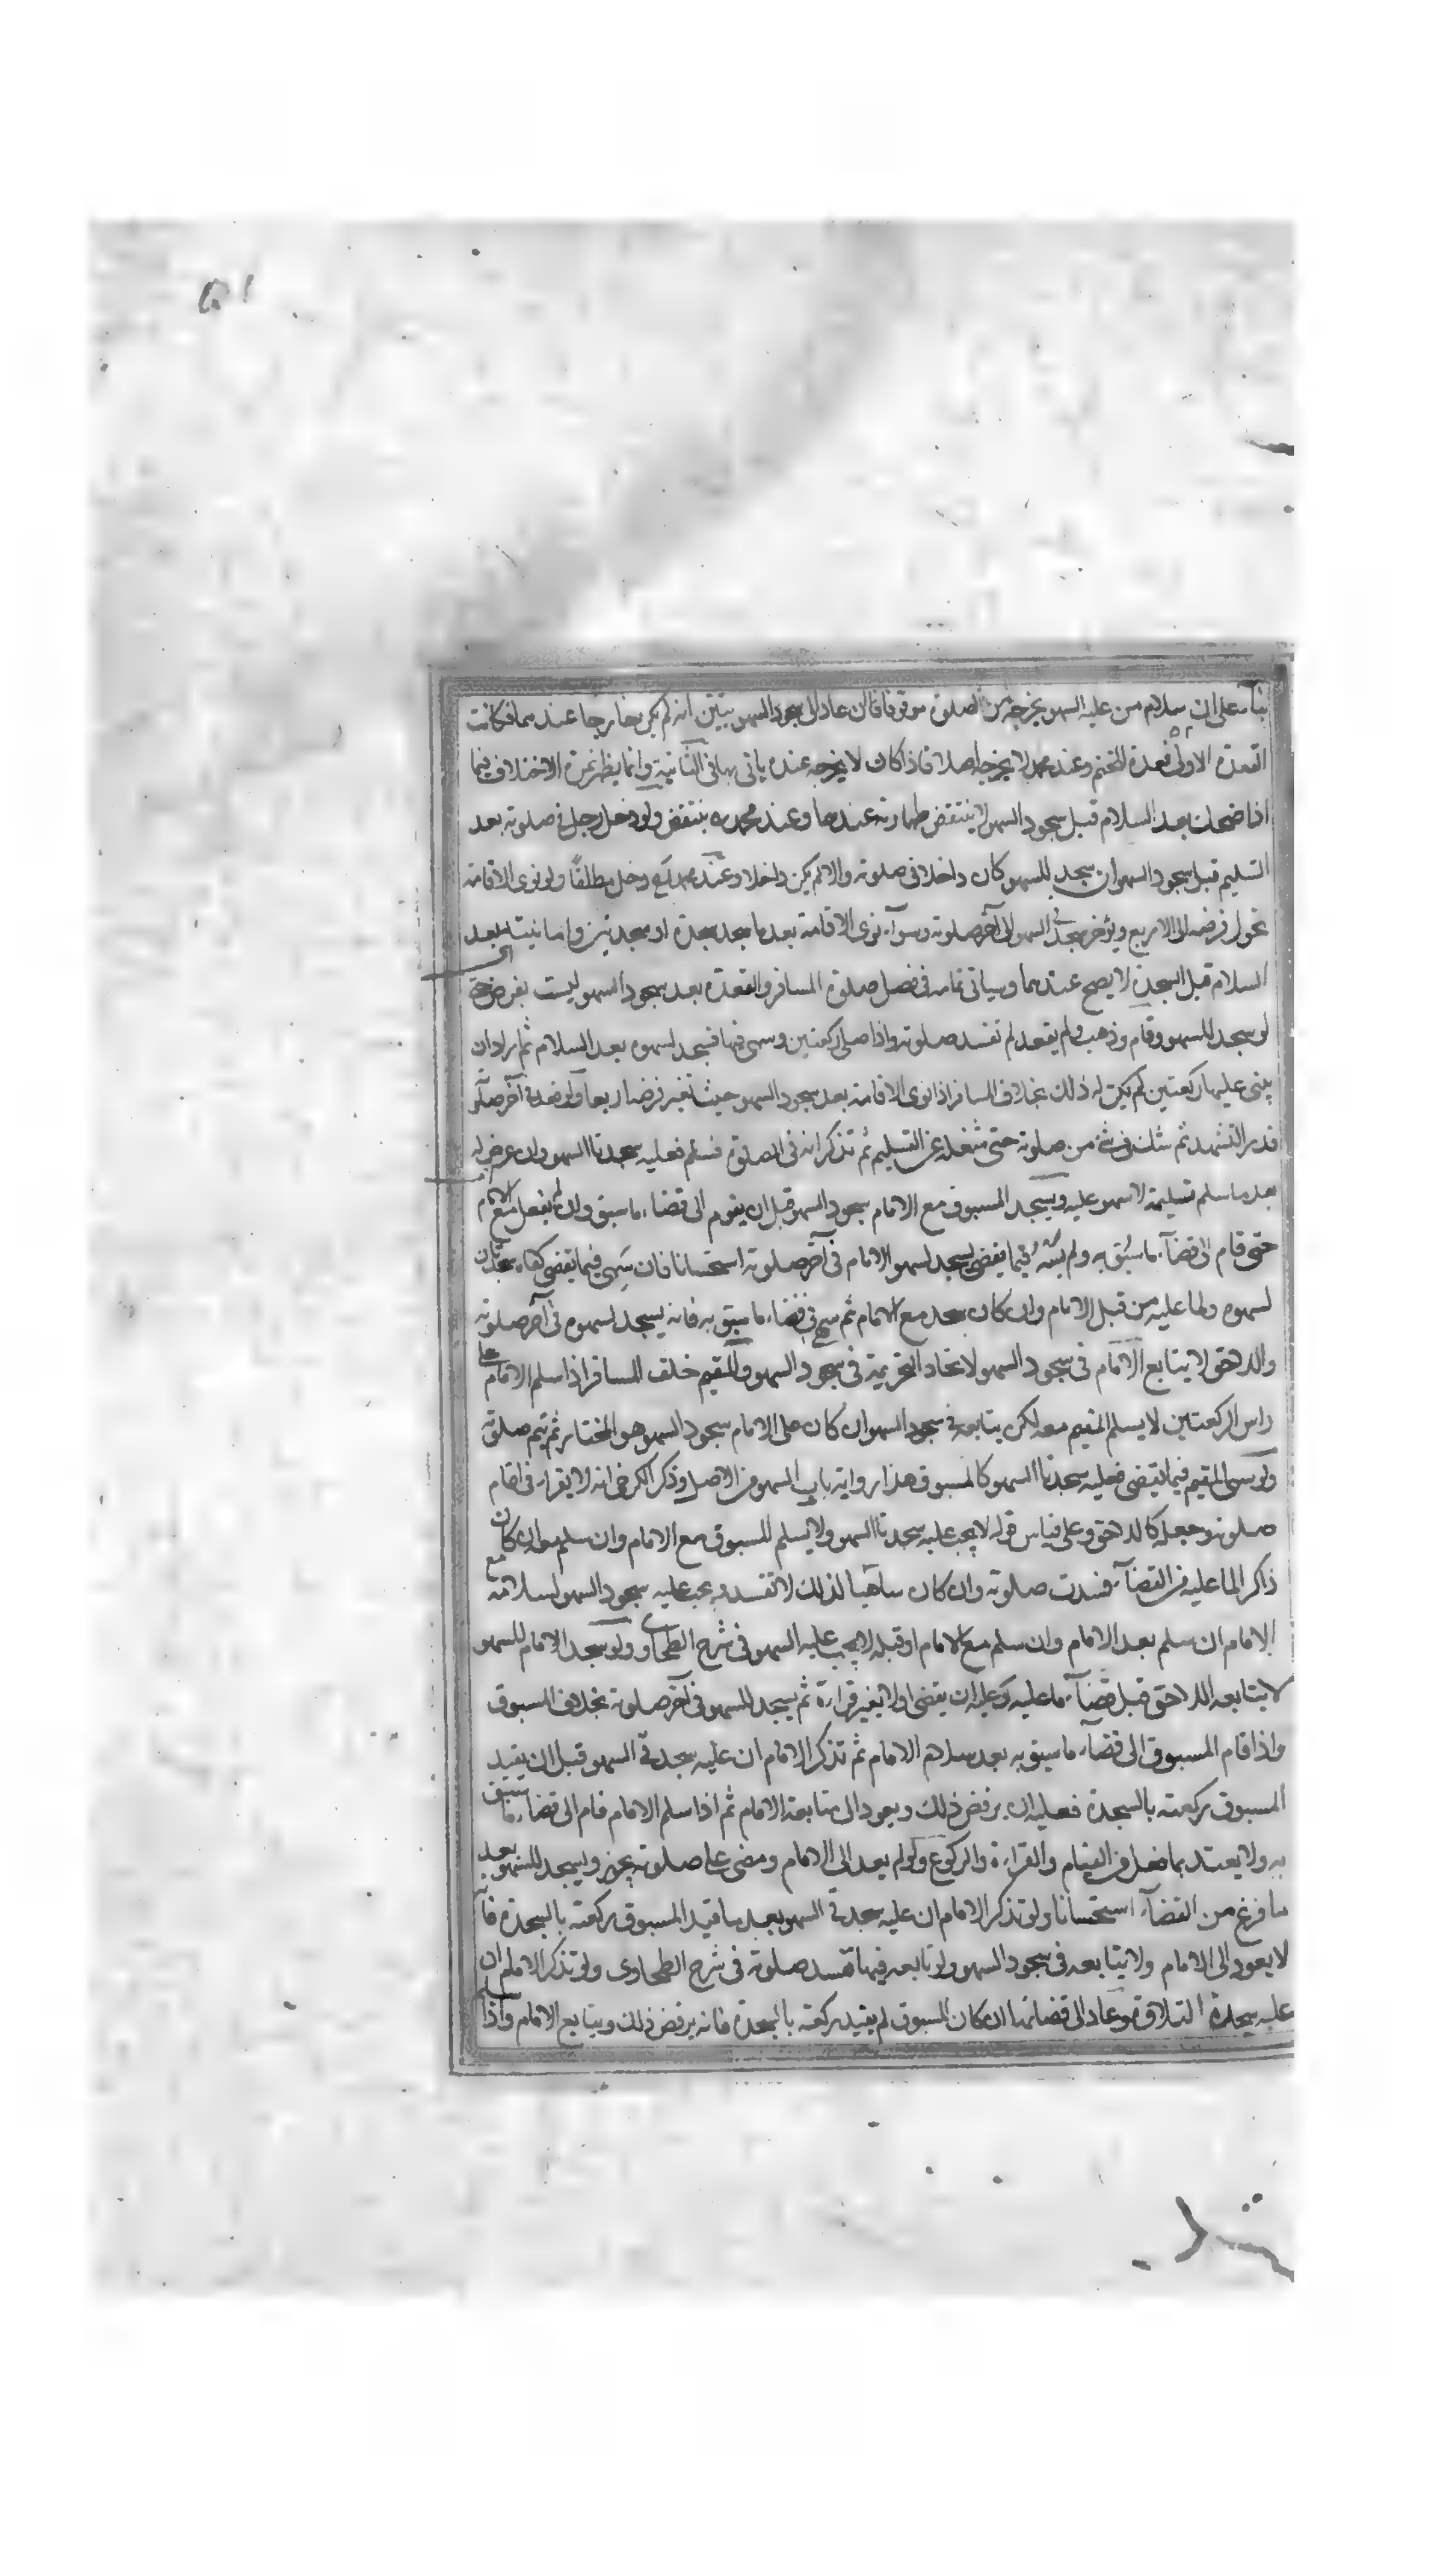 ٥١
بناء على ان سلام من عليه السهو يخرجه من الصلوة موقوفا فان عاد الى سجود السهو يتبين انه لم يكن خارجا عندهما فكانت
القعدة الاولى قعدة الختم وعند محمد لا يخرجه اصلا فاذا كان لا يخرجه عنده ياتى بها فى الثانية وانما يظهر ثمرة الاختلاف فيما
اذا ضحك بعد السلام قبل سجود السهو لا ينتقض طهارته عندهما وعند محمد ره ينتقض ولو دخل رجل فى صلوته بعد
التسليم قبل سجود السهو ان سجد للسهو كان داخلا فى صلوته والا لم يكن داخلا وعند محمد دخل مطلقا ولو نوى الاقامة
تحول فرضه الى الاربع ويؤخر سجدتى السهو الى آخر صلوته وسوآء نوى الاقامة بعد ما سجد سجدة او سجدتين واما نيته بعد
السلام قبل السجدة لا يصح عندهما وسياتى تمامه فى فصل صلوة المسافر والقعدة بعد سجود السهو ليست بفرض حتى
لو سجد للسهو وقام وذهب ولم يقعد لم تفسد صلوته واذا صلى ركعتين وسهى فيها فسجد لسهوه بعد السلام ثم اراد ان
يبنى عليها ركعتين لم يكن له ذلك بخلاف المسافر اذا نوى الاقامة بعد سجود السهو حيث تغير فرضه اربعا ولو قعد فى آخر صلوته
قدر التشهد ثم شك فى شئ من صلوته حتى شغله عن التسليم ثم تذكر انه فى الصلوة فسلم فعليه سجدتا السهو وان عرض له
بعد ما سلم تسليمة لا سهو عليه ويسجد المسبوق مع الامام سجود السهو قبل ان يقوم الى قضاء ما سبق وان لم يفعل مع الامام
حتى قام الى قضآء ما سبق به ولم يسه فيما يقضى يسجد لسهو الامام فى آخر صلوته استحسانا فان سهى فيما يقضى كفاه سجدتان
لسهوه ولما عليه من قبل الامام وان كان سجد مع الامام ثم سهى فى قضاء ما سبق به فانه يسجد لسهوه فى آخر صلوته
واللاحق لا يتابع الامام فى سجود السهو لاتحاد التحريمة فى سجود السهو والمقيم خلف المسافر اذا سلم الامام على
راس الركعتين لا يسلم المقيم معه لكن يتابعه فى سجود السهو ان كان على الامام سجود السهو هو المختار ثم يتم صلوته
ولو سهى المقيم فيما يقضى فعليه سجدتا السهو كالمسبوق هذا رواية باب السهو من الاصل وذكر الكرخى انه لا يقرا فى اتمام
صلوته وجعله كاللاحق وعلى قياس قوله لا يجب عليه سجدتا السهو ولا يسلم المسبوق مع الامام وان سلم معه ان كان
ذاكرا لما عليه من القضآء فسدت صلوته وان كان ساهيا لذلك لا تفسد ويجب عليه سجود السهو لسلامه مع
الامام ان سلم بعد الامام وان سلم مع الامام او قبله لا يجب عليه السهو فى شرح الطحاوى ولو سجد الامام للسهو
لا يتابعه اللاحق قبل قضآء ما عليه وعليه ان يقضى اولا بغير قراءة ثم يسجد للسهو فى آخر صلوته بخلاف المسبوق
واذا قام المسبوق الى قضآء ما سبق به بعد سلام الامام ثم تذكر الامام ان عليه سجدتى السهو قبل ان يقيد
المسبوق ركعته بالسجدة فعليه ان يرفض ذلك ويعود الى متابعة الامام ثم اذا سلم الامام قام الى قضاء ما سبق
به ولا يعتد بما فعل من القيام والقراءة والركوع ولو لم يعد الى الامام ومضى على صلوته يجوز ويسجد للسهو بعد
ما فرغ من القضآء استحسانا ولو تذكر الامام ان عليه سجدتى السهو بعد ما قيد المسبوق ركعته بالسجدة فانه
لا يعود الى الامام ولا يتابعه فى سجود السهو ولو تابعه فيها تفسد صلوته فى شرح الطحاوى ولو تذكر الامام ان
عليه سجدة التلاوة وعاد الى قضائها ان كان المسبوق لم يقيد ركعته بالسجدة فانه يرفض ذلك ويتابع الامام واذا سلم